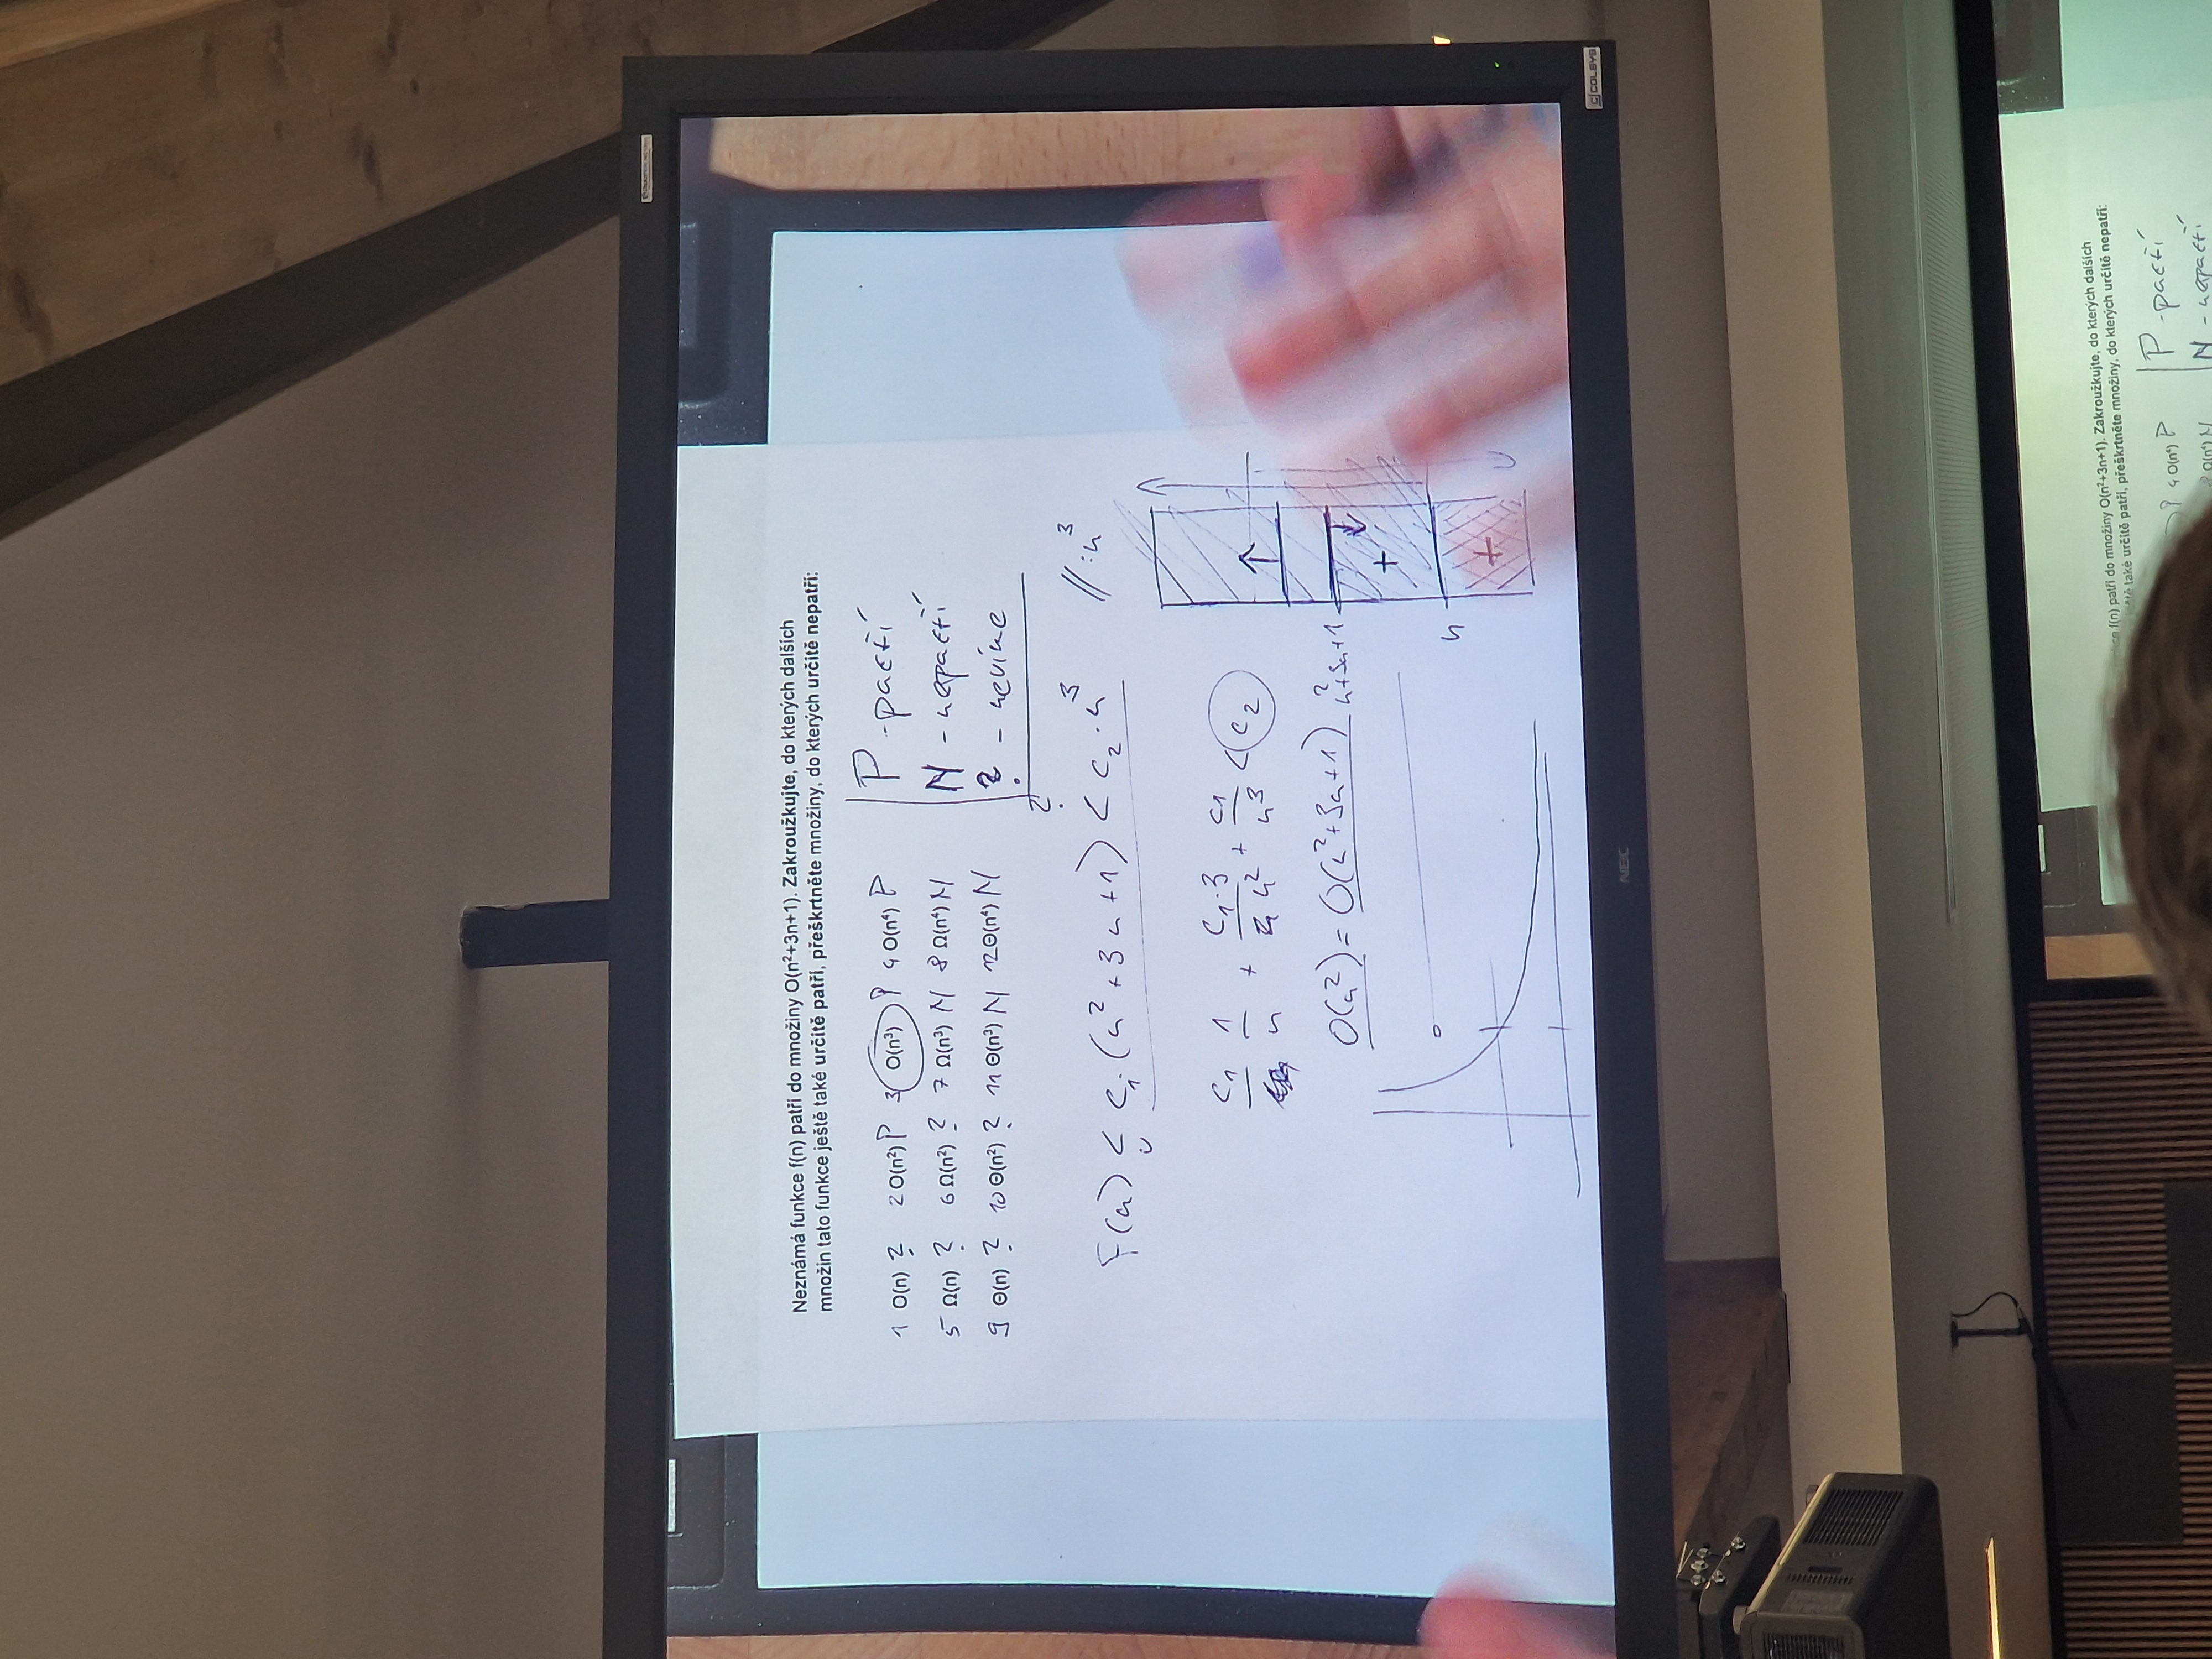 Neznámá funkce f(n) patří do množiny O(n²+3n+1). Zakroužkujte, do kterých dalších
množin tato funkce ještě také určitě patří, přeškrtněte množiny, do kterých určitě nepatří:
1 O(n) ? 2 O(n²) P 3 O(n³) P 4 O(n⁴) P
5 Ω(n) ? 6 Ω(n²) ? 7 Ω(n³) N 8 Ω(n⁴) N
9 Θ(n) ? 10 Θ(n²) ? 11 Θ(n³) N 12 Θ(n⁴) N
P - patří
N - nepatří
? - nevíme
?
F(n) ≤ c₁·(n²+3n+1) < c₂·n³ //:n³
c₁ 1/n + c₁·3/n² + c₁/n³ < c₂
O(n²) = O(n²+3n+1) n²+3n+1
+
n
+
NEC
COLSYS
f(n) patří do množiny O(n²+3n+1). Zakroužkujte, do kterých dalších
také určitě patří, přeškrtněte množiny, do kterých určitě nepatří:
P 4 O(n⁴) P
P - patří
N - nepatří